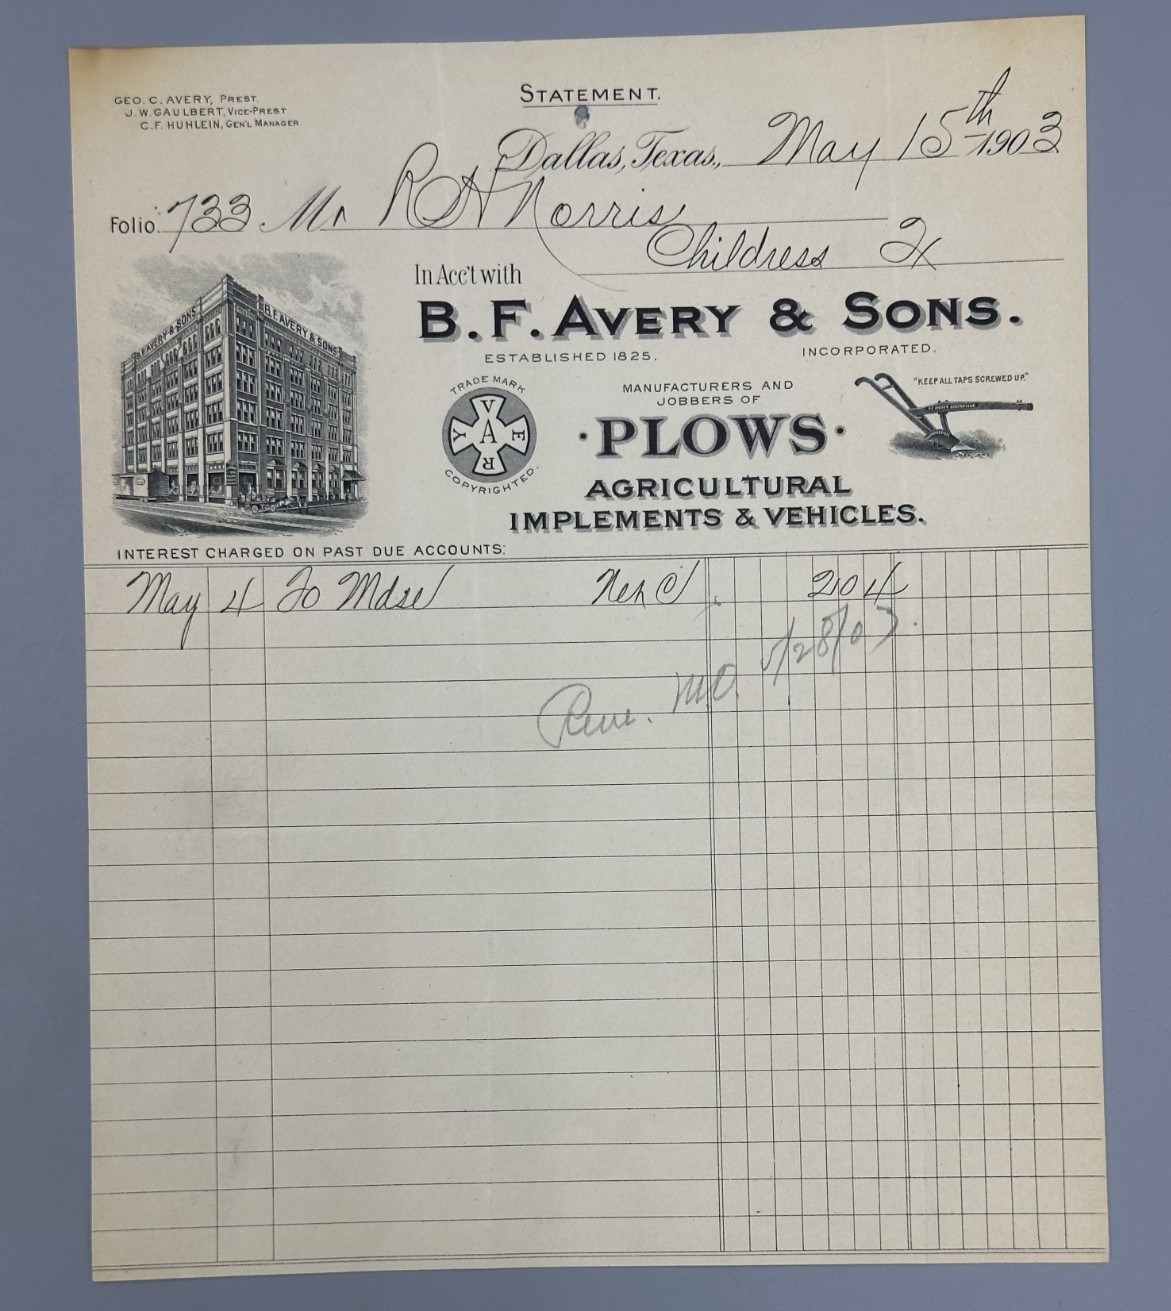 GEO. C. AVERY, PREST.
J. W. GAULBERT, VICE-PREST
C. F. HUHLEIN, GEN'L MANAGER
STATEMENT.
Dallas, Texas, May 15th 1903
Folio. 733 Mr R H Norris
Childress Tx
In Acc't with
B. F. AVERY & SONS.
ESTABLISHED 1825. INCORPORATED.
B.F. AVERY & SONS B.F. AVERY & SONS
TRADE MARK
AVERY
COPYRIGHTED.
MANUFACTURERS AND
JOBBERS OF
"KEEP ALL TAPS SCREWED UP."
·PLOWS·
AGRICULTURAL
IMPLEMENTS & VEHICLES.
INTEREST CHARGED ON PAST DUE ACCOUNTS:
May 4 To Mdse 204
M.O. 5/28/03.